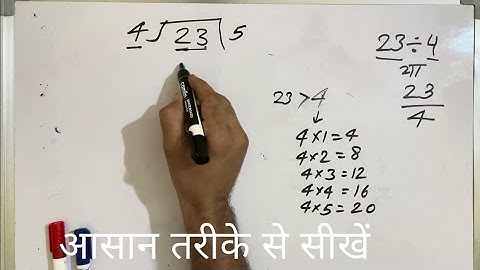 4)23(5
23÷4
या
23/4
23>4
↓
4×1=4
4×2=8
4×3=12
4×4=16
4×5=20
आसान तरीके से सीखें